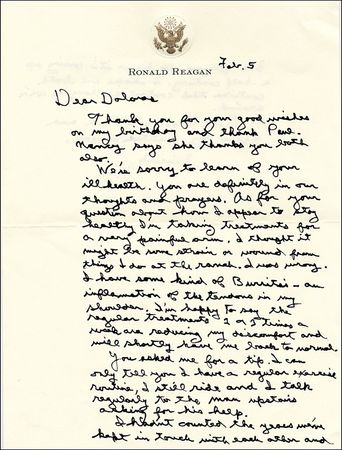 RONALD REAGAN
Feb. 5
Dear Dolores
Thank you for your good wishes
on my birthday and thank Paul.
Nancy says she thanks you both
also.
We're sorry to learn of your
ill health. You are definitely in our
thoughts and prayers. As for your
question about how I appear to stay
healthy I'm taking treatments for
a very painful arm. I thought it
might be some strain or wound from
things I do at the ranch. I was wrong.
I have some kind of Bursitis - an
inflamation of the tendons in my
shoulder. I'm happy to say the
regular treatments 2 or 3 times a
week are reducing my discomfort and
will shortly have me back to normal.
You asked me for a tip. I can
only tell you I have a regular exercise
routine, I still ride and I talk
regularly to the man upstairs
asking for his help.
I hadn't counted the years we've
kept in touch with each other and